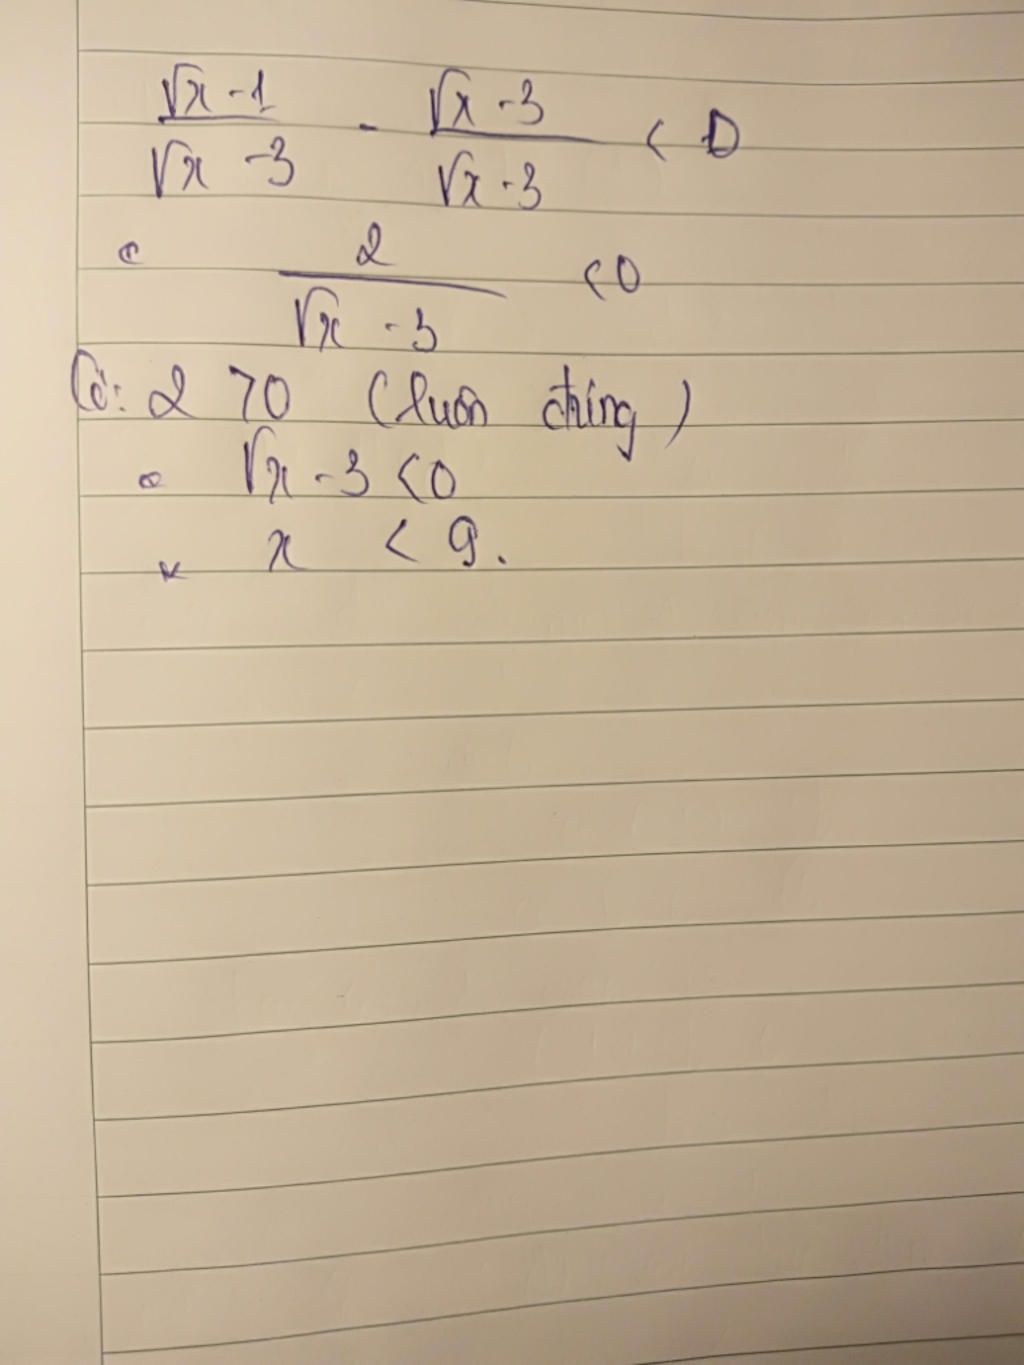 (√x - 1)/(√x - 3) - (√x - 3)/(√x - 3) < 0
2/(√x - 3) < 0
Có: 2 > 0 (luôn đúng)
√x - 3 < 0
x < 9.